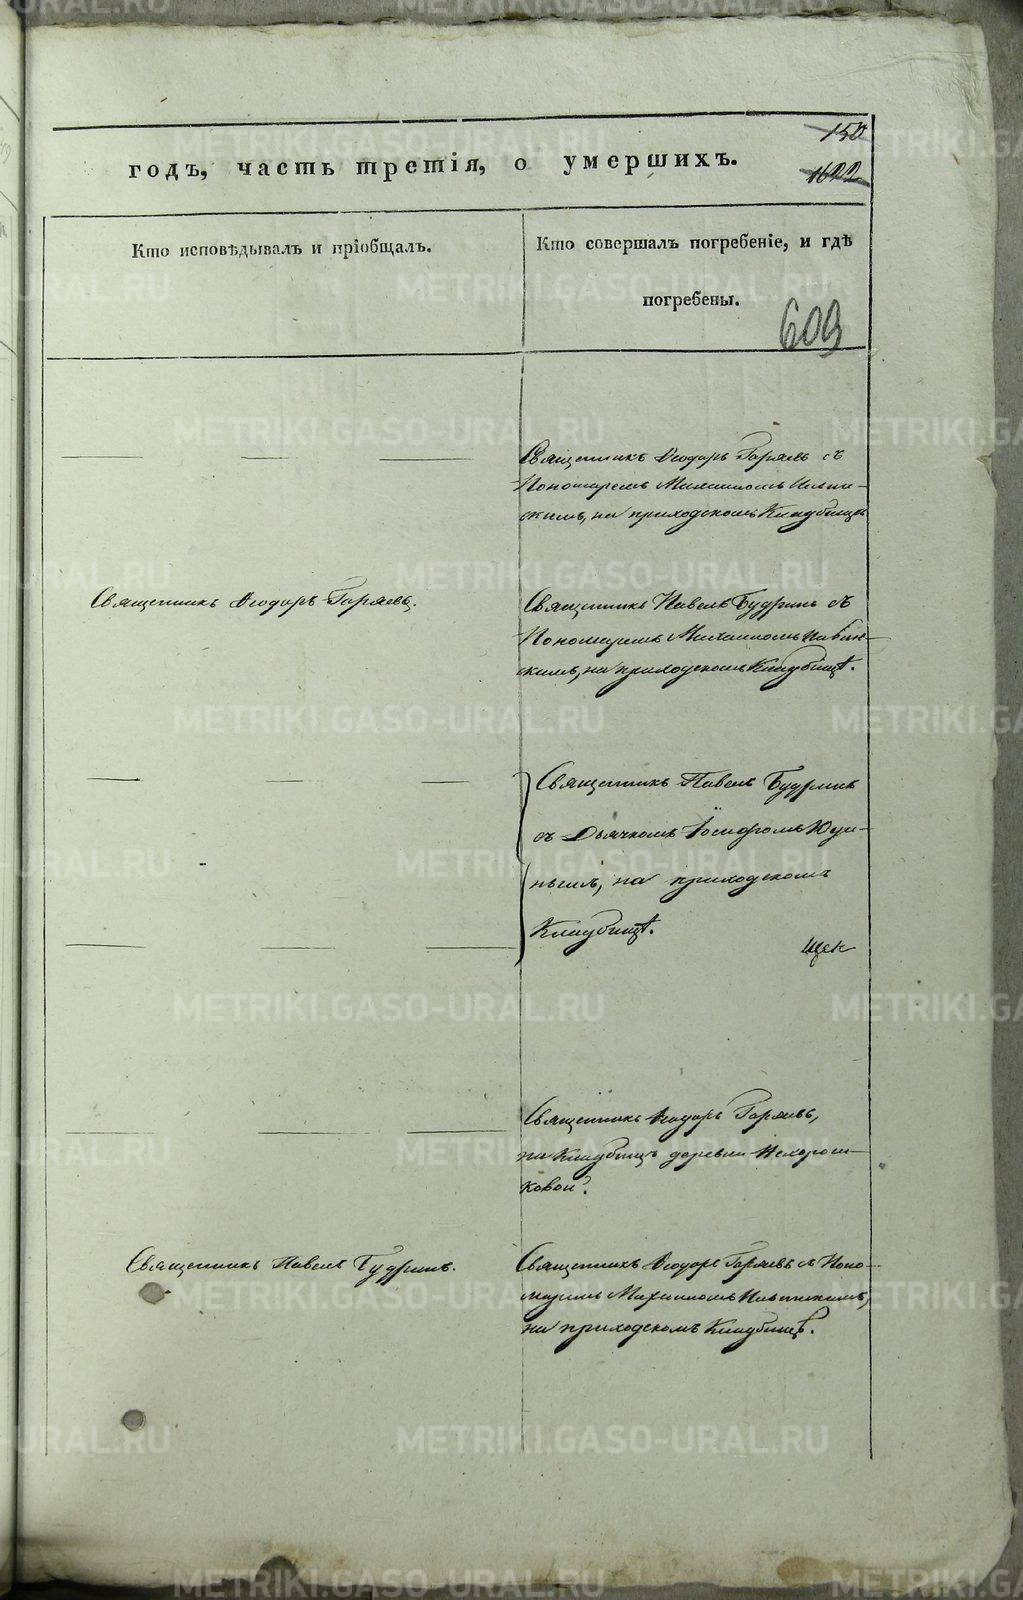 150
годъ, часть третія, о умершихъ.
1622
Кто исповѣдывалъ и пріобщалъ.
Кто совершалъ погребеніе, и гдѣ
погребены.
609
Священникъ Ѳеодоръ Горяевъ съ
Пономаремъ Михаиломъ
скимъ, на приходскомъ Кладбищѣ
Священникъ Ѳеодоръ Горяевъ.
Священникъ Павелъ Будринъ съ
Пономаремъ Михаиломъ
скимъ, на приходскомъ Кладбищѣ.
Священникъ Павелъ Будринъ
съ Дьячкомъ Іосифомъ
на приходскомъ
Кладбищѣ.
Священникъ Ѳеодоръ Горяевъ,
на Кладбищѣ деревни
ковой.
Священникъ Павелъ Будринъ.
Священникъ Ѳеодоръ Горяевъ съ Поно-
маремъ Михаиломъ
на приходскомъ Кладбищѣ.
METRIKI.GASO-URAL.RU